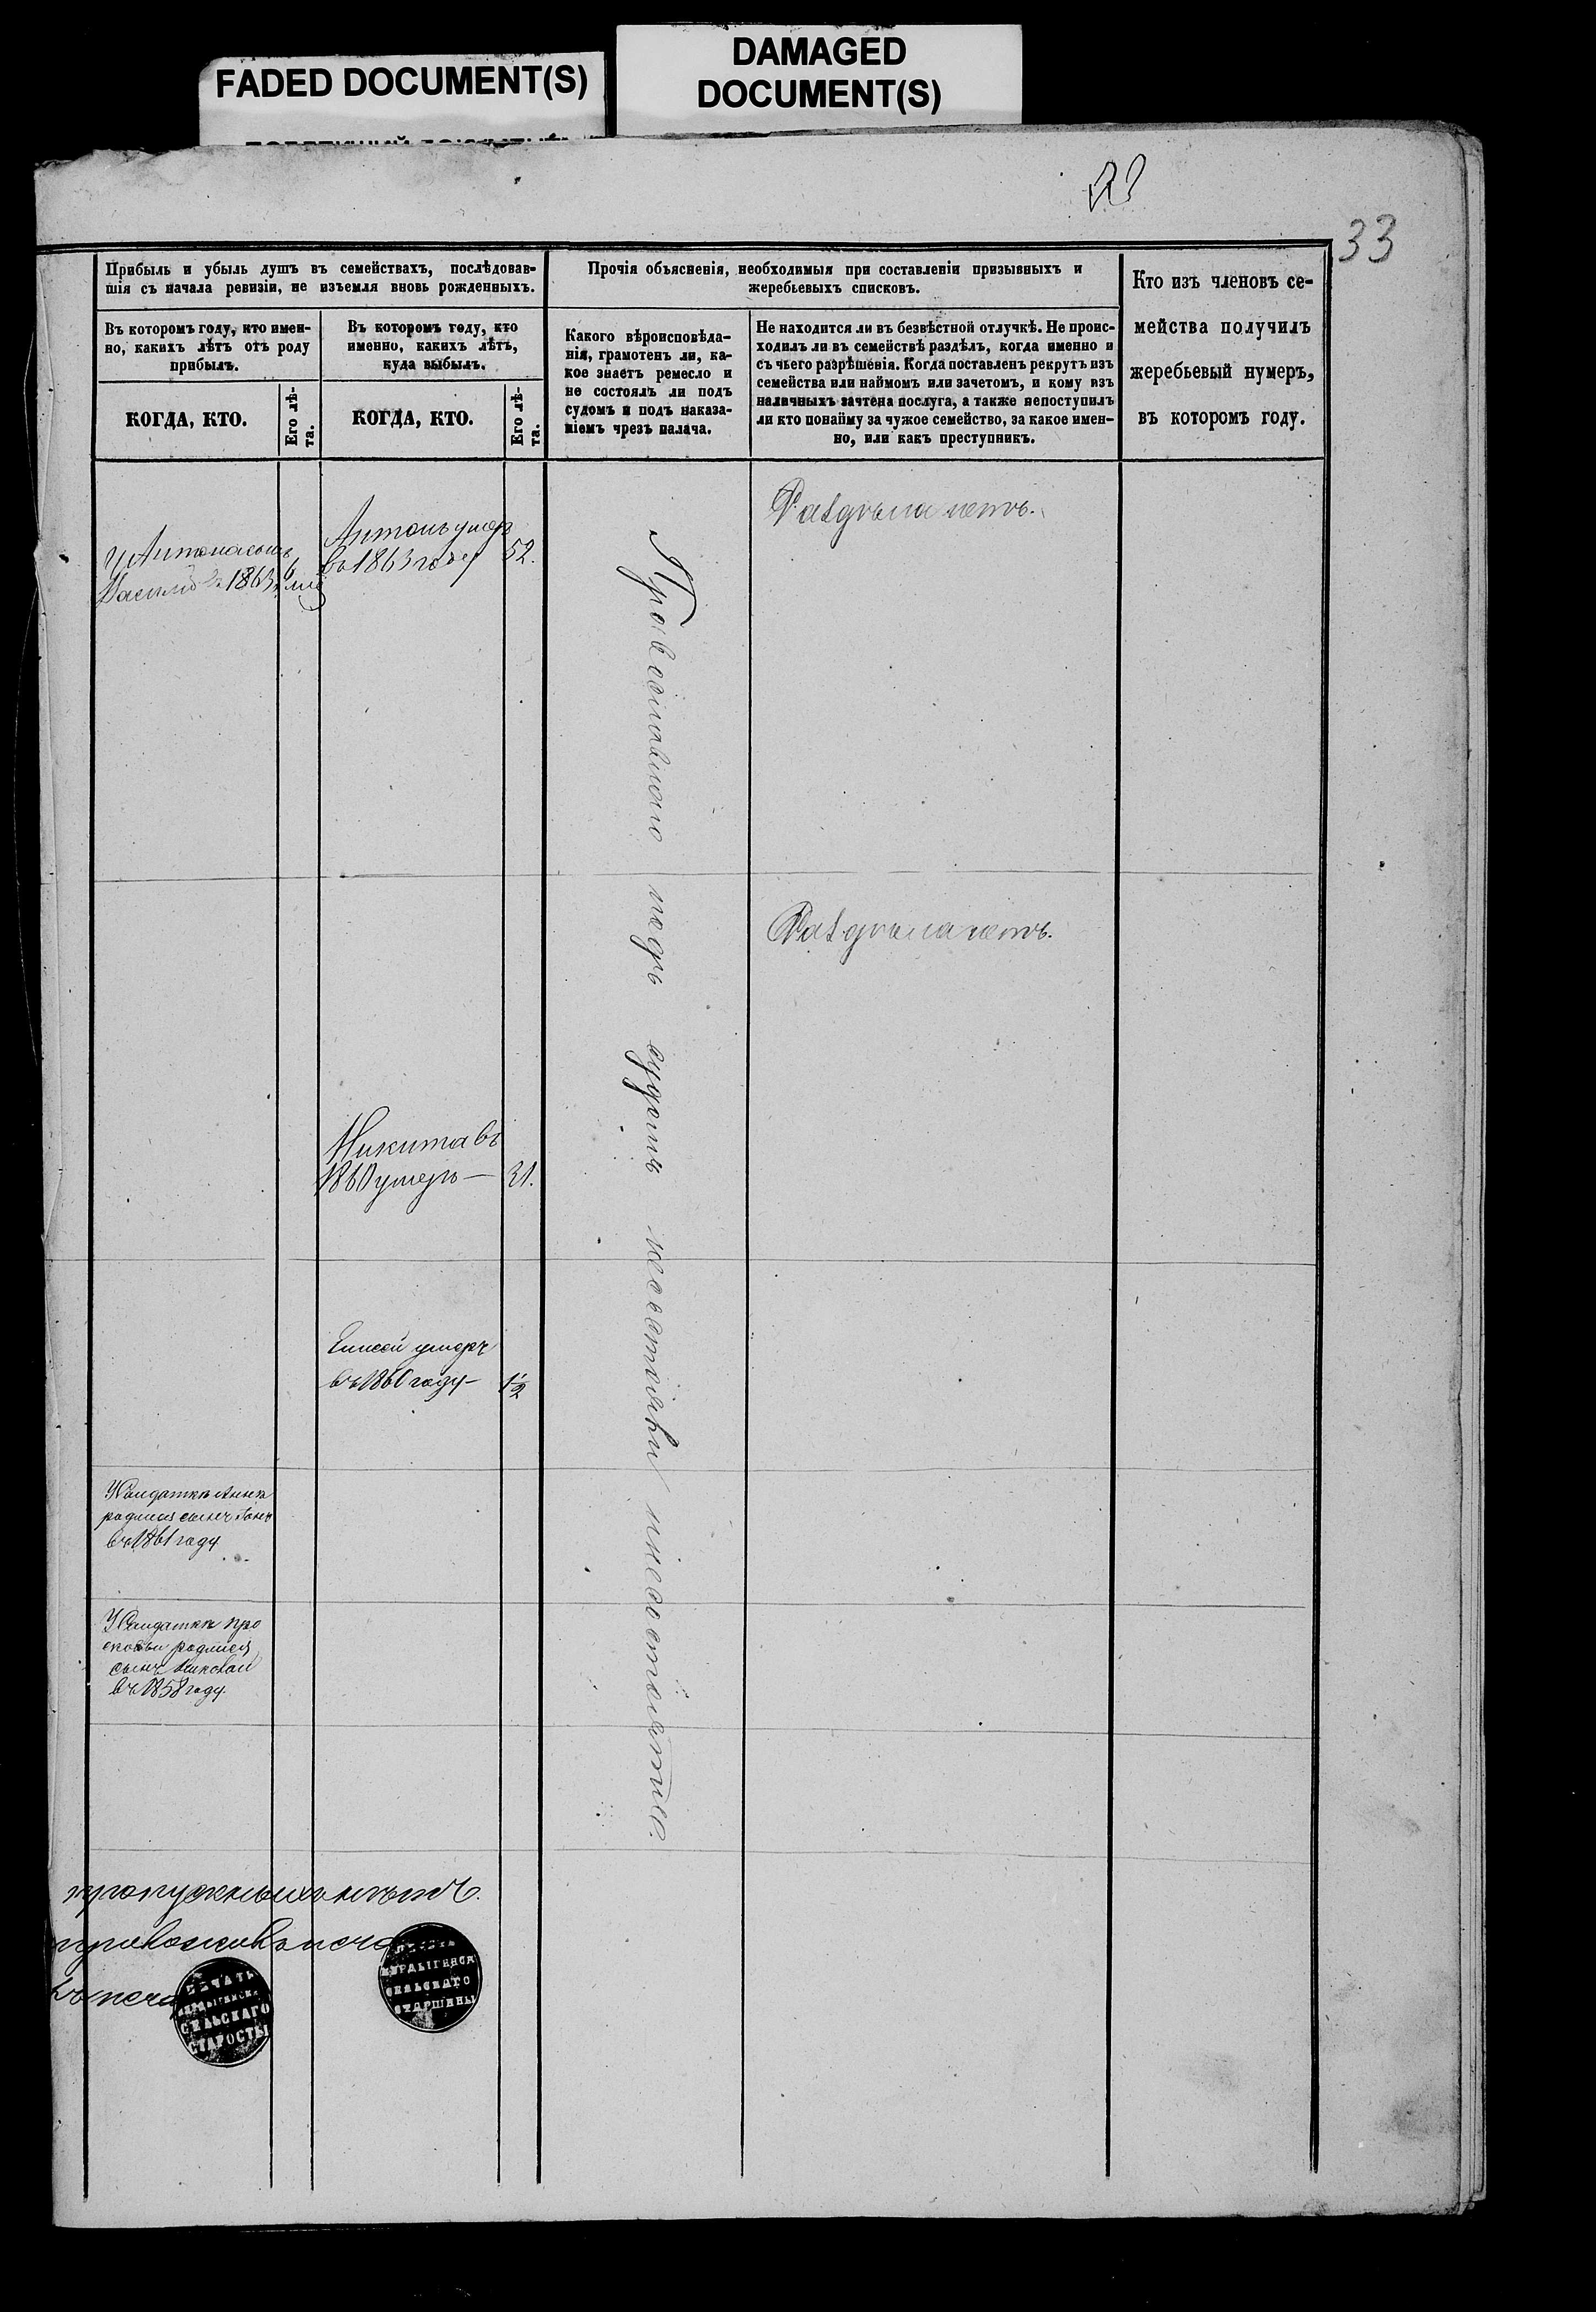 FADED DOCUMENT(S)
DAMAGED
DOCUMENT(S)
33
Прибыль и убыль душъ въ семействахъ, послѣдовав-
шія съ начала ревизіи, не изъемля вновь рожденныхъ.
Въ которомъ году, кто имен-
но, какихъ лѣтъ отъ роду
прибылъ.
КОГДА, КТО.
Его лѣ-
та.
Въ которомъ году, кто
именно, какихъ лѣтъ,
куда выбылъ.
КОГДА, КТО.
Его лѣ-
та.
Прочія объясненія, необходимыя при составленіи призывныхъ и
жеребьевыхъ списковъ.
Какого вѣроисповѣда-
нія, грамотенъ ли, ка-
кое знаетъ ремесло и
не состоялъ ли подъ
судомъ и подъ наказа-
ніемъ чрезъ палача.
Не находится ли въ безвѣстной отлучкѣ. Не проис-
ходилъ ли въ семействѣ раздѣлъ, когда именно и
съ чьего разрѣшенія. Когда поставленъ рекрутъ изъ
семейства или наймомъ или зачетомъ, и кому изъ
наличныхъ зачтена послуга, а также непоступилъ
ли кто понайму за чужое семейство, за какое имен-
но, или какъ преступникъ.
Кто изъ членовъ се-
мейства получилъ
жеребьевый нумеръ,
въ которомъ году.
У Антона сынъ
Василій 1863
Антонъ умеръ
въ 1863 году 52.
Раздѣла нетъ.
Православнаго подъ судомъ несостояли и несостоятъ
Раздѣла нетъ.
Никита въ
1860 умеръ — 31.
Елисей умеръ
въ 1860 году — 1½
У Салдатки Анны
родился сынъ
въ 1861 году
У Салдатки Про
сковьи родился
сынъ Николай
въ 1858 году.
пропускныхъ нѣтъ.
приложивъ печа
ПЕЧАТЬ
СЕЛЬСКАГО
СТАРШИНЫ
печа
ПЕЧАТЬ
СЕЛЬСКАГО
СТАРОСТЫ